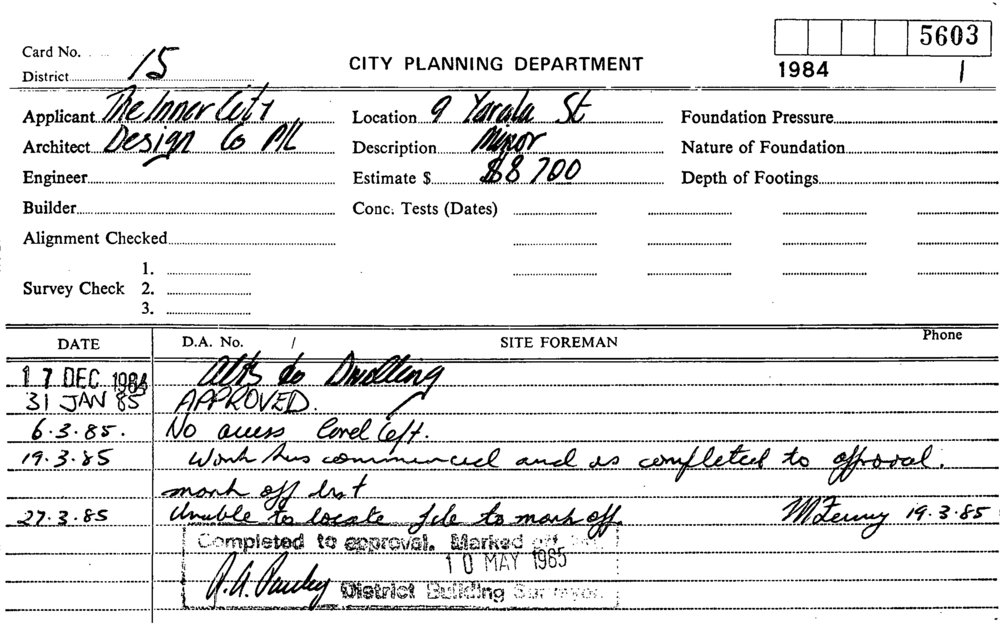 5603
Card No. 15
CITY PLANNING DEPARTMENT
1984 /
District
Applicant The Inner City
Location 9 Yarala St
Foundation Pressure
Architect Design Co P/L
Description Minor
Nature of Foundation
Engineer
Estimate $ $8700
Depth of Footings
Builder
Conc. Tests (Dates)
Alignment Checked
1.
Survey Check 2.
3.
DATE D.A. No. / SITE FOREMAN Phone
17 DEC 1984 Alts to Dwelling
31 JAN 85 APPROVED.
6.3.85. No access Card left.
19.3.85 Work has commenced and is completed to approval.
mark off
27.3.85 Unable to locate file to mark off 19.3.85
Completed to approval. Marked off
10 MAY 1985
District Building Surveyor.